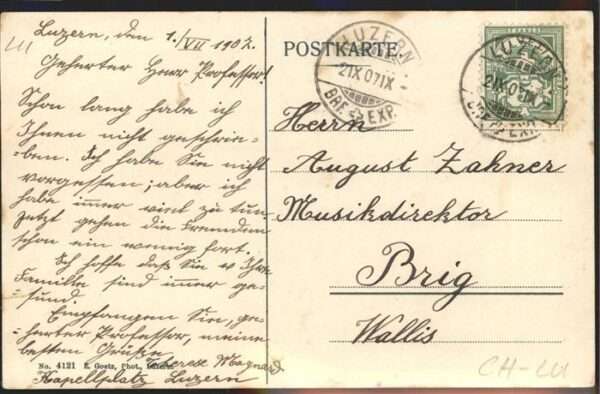 Luzern, den 1./VII 1907.
Geherter Herr Professor!
Schon lang habe ich
Ihnen nicht geschrie-
ben. Ich habe Sie nicht
vorgessen; aber ich
habe immer viel zu tun
jetzt gehen die Fremden
schon ein wenig fort.
Ich hoffe daß Sie u Ihre
Familie sind imer ge-
sund.
Empfangen Sie, ge-
herter Professor, meine
besten Grüsse
Therese Magnard
Kapellplatz Luzern
No. 4121 E. Goetz, Phot., Luzern
POSTKARTE.
LUZERN
21X071X
BRF. EXP.
LUZERN
21X071X
BRF. EXP.
Herrn
August Zahner
Musikdirektor
Brig
Wallis
CH-LU
LU